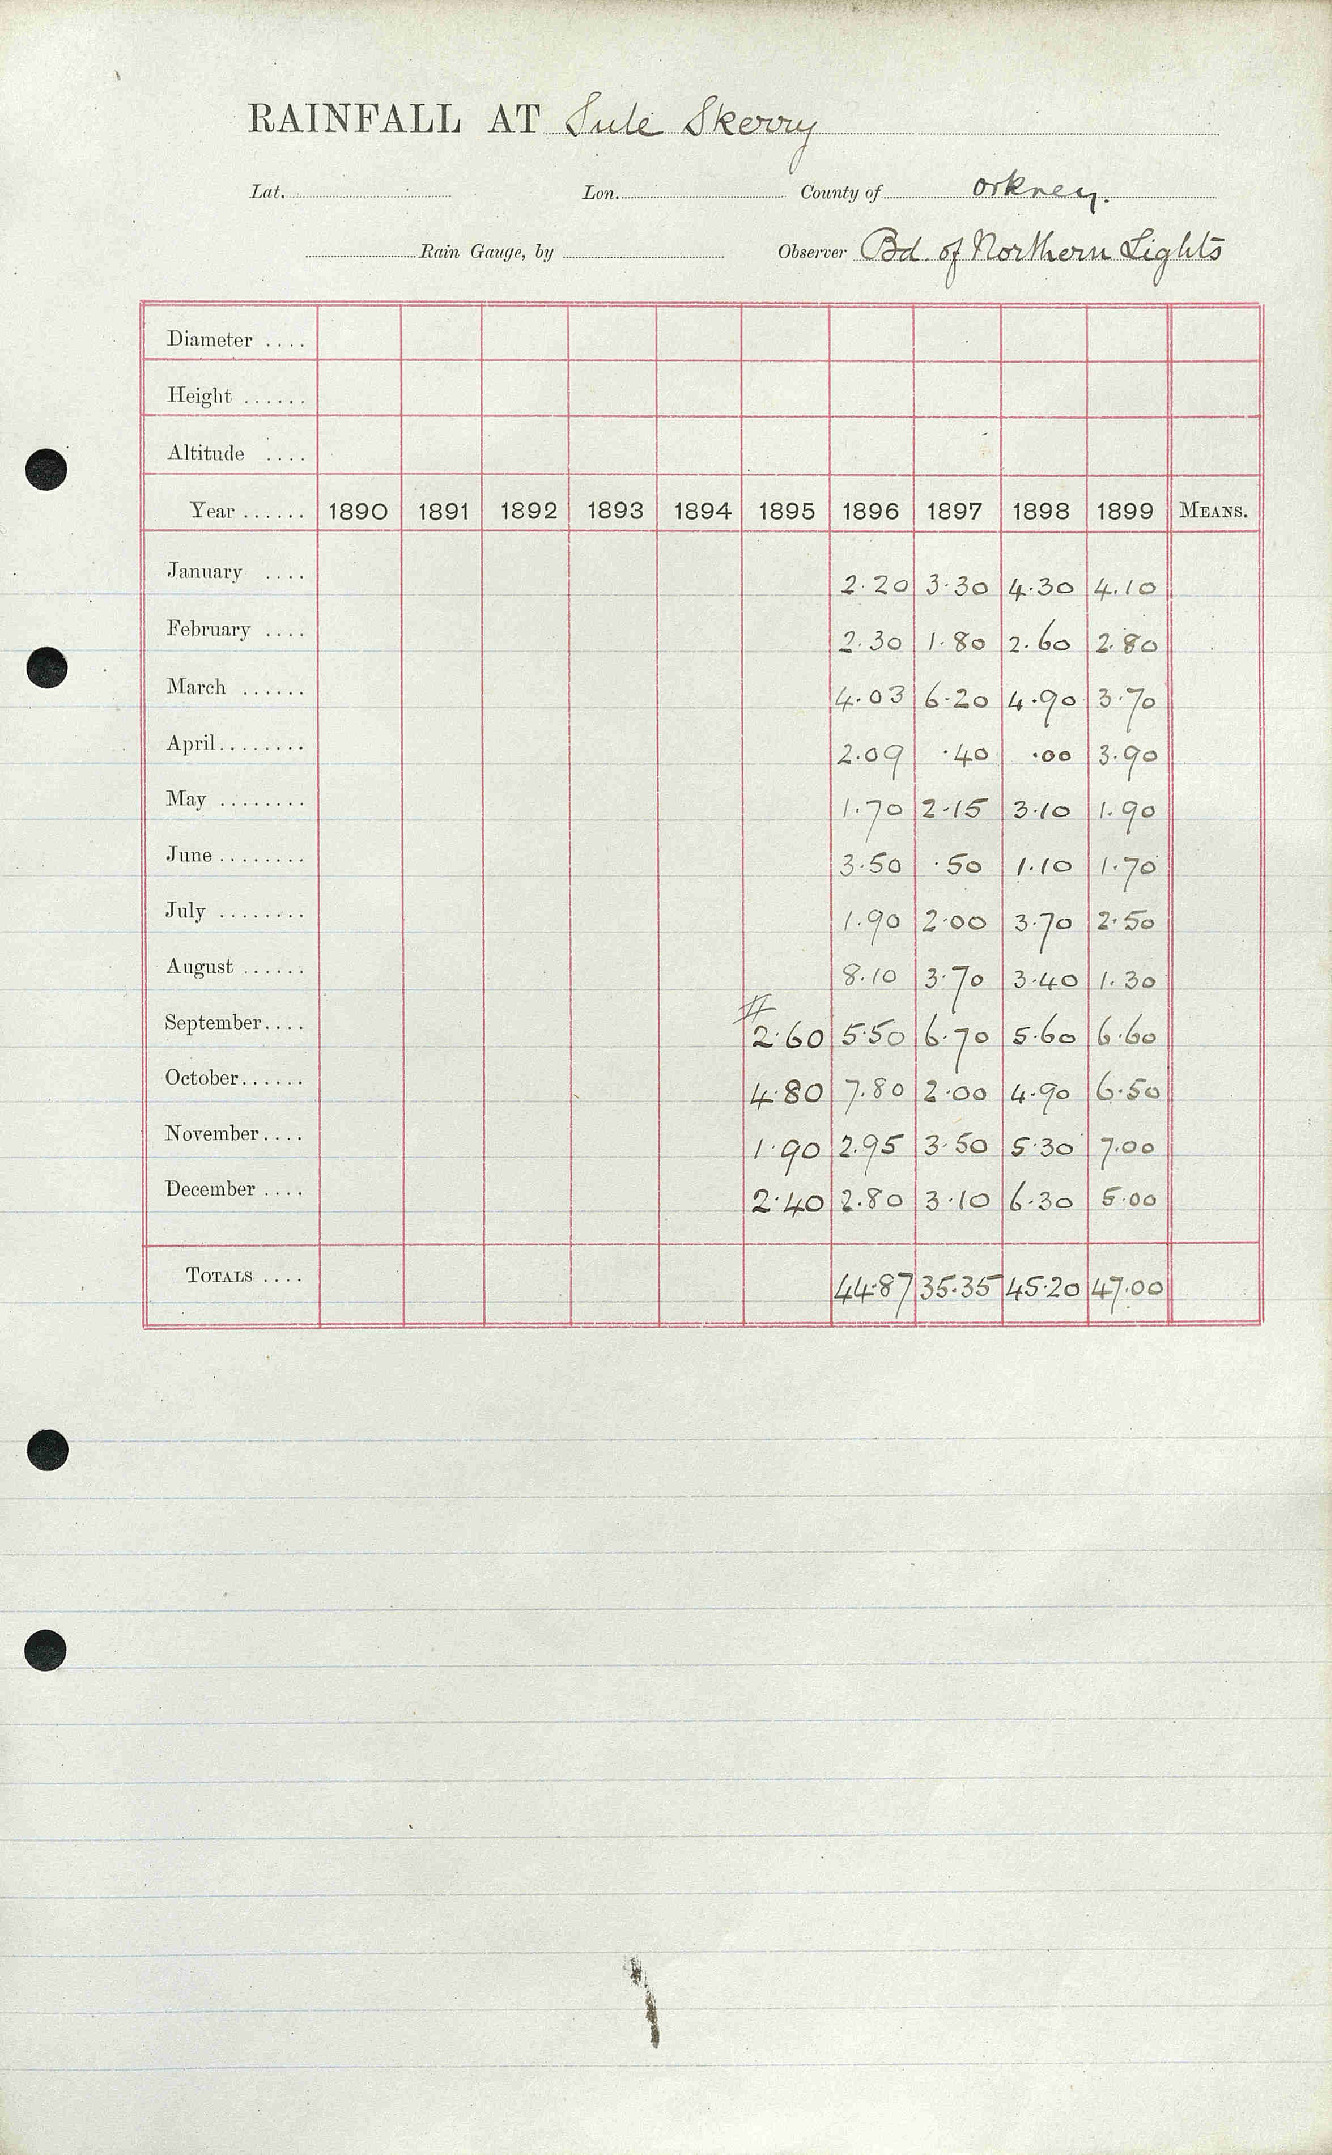 RAINFALL AT Sule Skerry
Lat. Lon. County of Orkney.
Rain Gauge, by Observer Bd. of Northern Lights
Diameter ....
Height ......
Altitude ....
Year ...... 1890 1891 1892 1893 1894 1895 1896 1897 1898 1899 MEANS.
January .... 2.20 3.30 4.30 4.10
February .... 2.30 1.80 2.60 2.80
March ...... 4.03 6.20 4.90 3.70
April........ 2.09 .40 .00 3.90
May ........ 1.70 2.15 3.10 1.90
June ........ 3.50 .50 1.10 1.70
July ........ 1.90 2.00 3.70 2.50
August ...... 8.10 3.70 3.40 1.30
September.... # 2.60 5.50 6.70 5.60 6.60
October...... 4.80 7.80 2.00 4.90 6.50
November.... 1.90 2.95 3.50 5.30 7.00
December .... 2.40 2.80 3.10 6.30 5.00
TOTALS .... 44.87 35.35 45.20 47.00